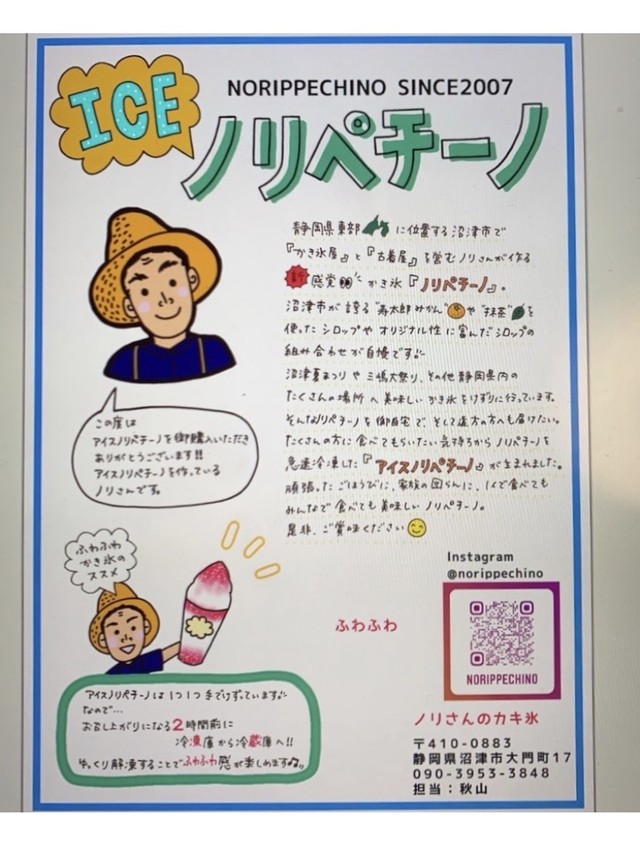 ICE
NORIPPECHINO SINCE2007
ノリペチーノ
静岡県東部に位置する沼津市で
『かき氷屋』と『古着屋』を営むノリさんが作る
新感覚かき氷『ノリペチーノ』。
沼津市が誇る"寿太郎みかん"や"抹茶"を
使ったシロップやオリジナル性に富んだシロップの
組み合わせが自慢です!!
沼津夏まつりや三嶋大祭り、その他静岡県内の
たくさんの場所へ美味しいかき氷をけずりに行っています。
そんなノリペチーノを御自宅で、そして遠方の方へも届けたい。
たくさんの方に食べてもらいたい気持ちからノリペチーノを
急速冷凍した『アイスノリペチーノ』が生まれました。
頑張ったごほうびに、家族の団らんに、1人で食べても
みんなで食べても美味しいノリペチーノ。
是非、ご賞味ください
この度は
アイスノリペチーノを御購入いただき
ありがとうございます!!
アイスノリペチーノを作っている
ノリさんです。
ふわふわ
かき氷の
ススメ
ふわふわ
アイスノリペチーノは1つ1つ手でけずっています!!
なので…
お召し上がりになる2時間前に
冷凍庫から冷蔵庫へ!!
ゆっくり解凍することでふわふわ感が楽しめますよ。
Instagram
@norippechino
NORIPPECHINO
ノリさんのカキ氷
〒410-0883
静岡県沼津市大門町17
090-3953-3848
担当：秋山